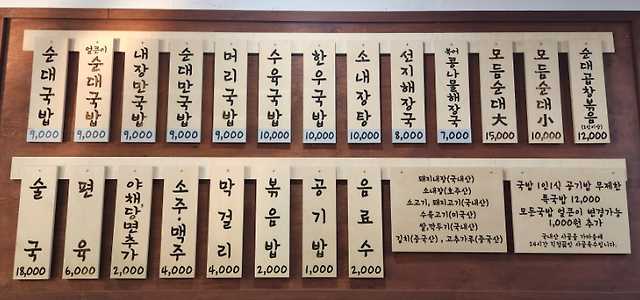 순대국밥
9,000
얼큰이
순대국밥
9,000
내장만국밥
9,000
순대만국밥
9,000
머리국밥
9,000
수육국밥
10,000
한우국밥
10,000
소내장탕
10,000
선지해장국
8,000
북어
콩나물해장국
7,000
모듬순대大
15,000
모듬순대小
10,000
순대곱창볶음
(2인이상)
12,000
술국
18,000
편육
6,000
야채,당면추가
2,000
소주·맥주
4,000
막걸리
4,000
볶음밥
2,000
공기밥
1,000
음료수
2,000
돼지내장(국내산)
소내장(호주산)
소고기, 돼지고기(국내산)
수육고기(미국산)
쌀,깍두기(국내산)
김치(중국산), 고추가루(중국산)
국밥 1인1식 공기밥 무제한
특국밥 12,000
모든국밥 얼큰이 변경가능
1,000원 추가
국내산 사골을 가마솥에
24시간 직접끓인 사골육수입니다.